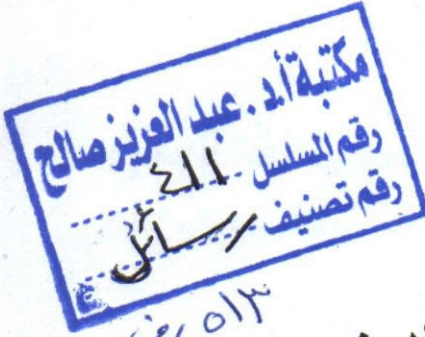 مكتبة أ.د. عبد العزيز صالح
رقم المسلسل ٤١١
رقم تصنيف رسائل
٥١٣